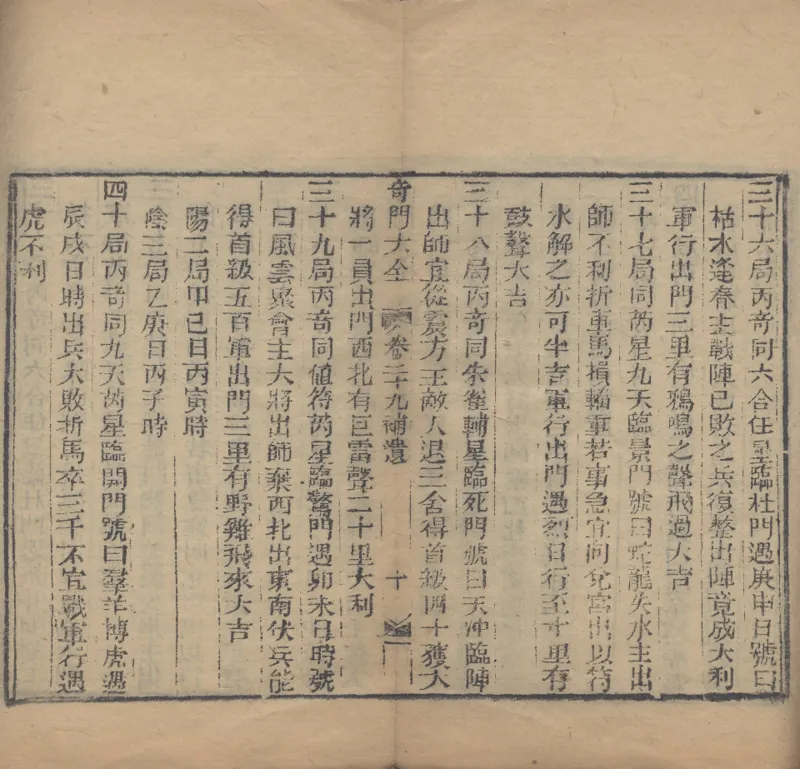 三十六局丙奇同六合任星臨杜門遇庚申日號曰
枯木逢春主戰陣已敗之兵復整出陣竟成大利
軍行出門三里有鴉鳴之聲飛過大吉
三十七局同芮星九天臨景門號曰蛇龍失水主出
師不利折車馬損輜重若事急宜向兌宮出以符
水解之亦可半吉軍行出門遇烈日行至十里有
鼓聲大吉
三十八局丙奇同朱雀輔星臨死門號曰天冲臨陣
出師宜從震方主敵人退三舍得首級四十獲大
奇門大全 卷二十九補遺 十
將一員出門西北有巨雷聲二十里大利
三十九局丙奇同値符芮星臨驚門遇卯未日時號
曰風雲聚會主大將出師棄西北出東南伏兵能
得首級五百軍出門三里有野雞飛來大吉
陽二局甲己日丙寅時
陰三局乙庚日丙子時
四十局丙奇同九天芮星臨開門號曰羣羊博虎遇
辰戌日時出兵大敗折馬卒三千不宜戰軍行遇
虎不利